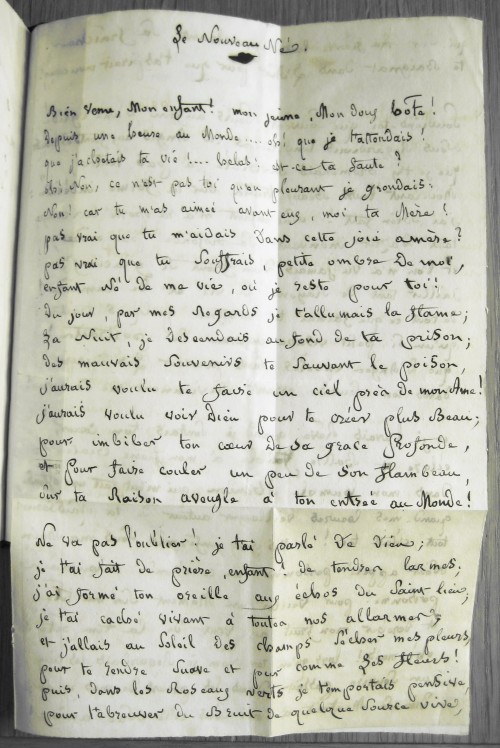 Le Nouveau Né.
Bien venu, Mon enfant! mon jeune, Mon doux hôte!
Depuis une heure au Monde.... oh! que je t'attendais!
que j'achetais ta vie!.... helas! est-ce ta faute?
oh! Non, ce n'est pas toi qu'en pleurant je grondais:
Non! car tu m'as aimée avant eux, moi, ta Mère!
pas vrai que tu m'aidais Dans cette joie amère?
pas vrai que tu Souffrais, petite ombre De moi,
enfant Né de ma vie, où je reste pour toi!
Du jour, par mes Regards je t'allumais la flame;
La Nuit, je Descendais au fond de ta prison;
des mauvais Souvenirs te Sauvant le poison,
j'aurais voulu te faire un ciel près de mon Ame!
j'aurais voulu voir Dieu pour te créer plus Beau;
pour imbiber ton cœur De sa grace Profonde,
et Pour faire couler un peu de Son flambeau,
Sur ta Raison aveugle à ton entrée au Monde!
Ne va pas l'oublier! je t'ai parlé De Dieu;
je t'ai fait de prière, enfant! de tendres larmes;
j'ai formé ton oreille aux échos du Saint lieu;
je t'ai caché vivant à toutes nos allarmes;
et j'allais au Soleil des champs Sécher mes pleurs,
pour te rendre Suave et pur comme Les fleurs!
puis, dans les Roseaux verts je t'emportais pensive,
pour t'abreuver du Bruit de quelque Source vive,